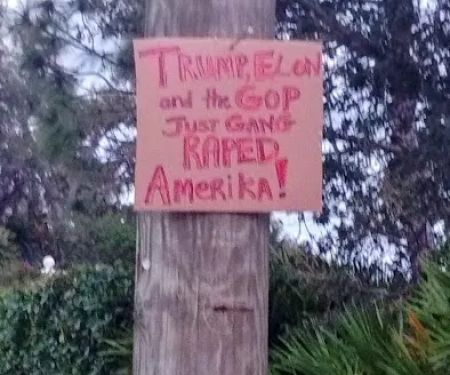 TRUMP, ELON
and the GOP
JUST GANG
RAPED
AmeriKA!